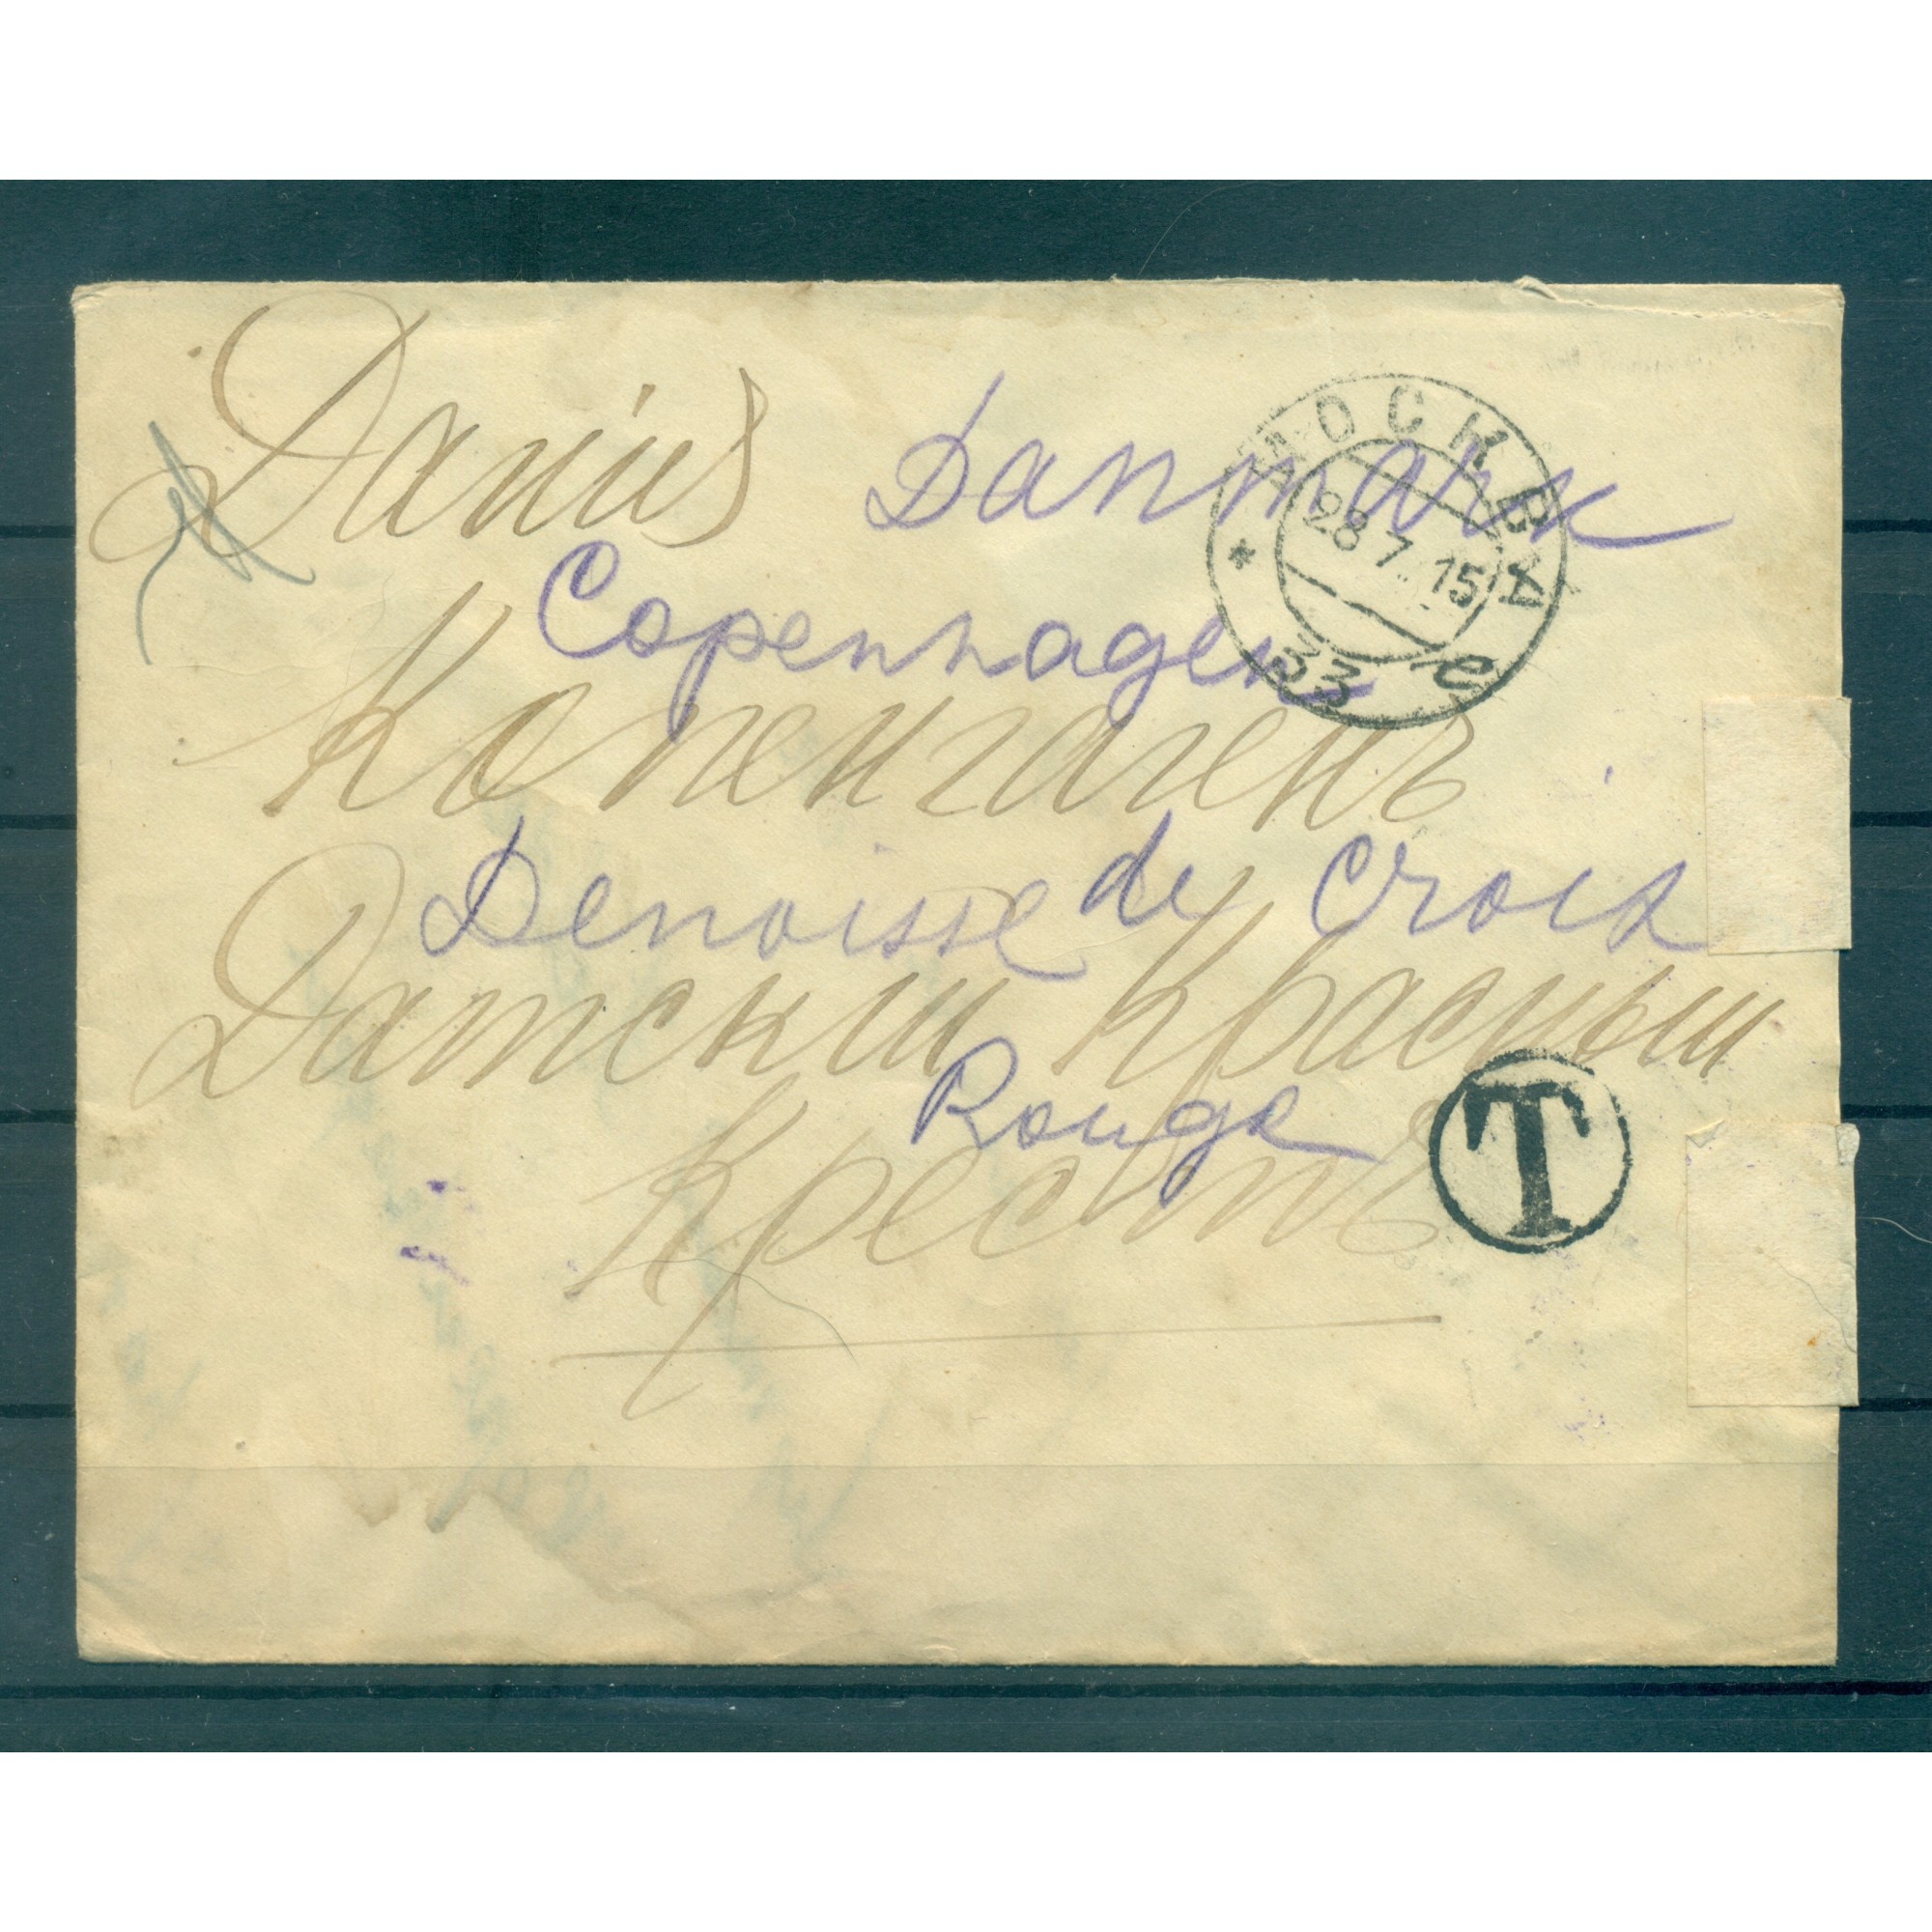 Данія Danmark
МОСКВА
28 7 15
33 е
Copenhagen
Копенгагенъ
Denoisse de Croix
Датскій Красный
Rouge
Крестъ
T